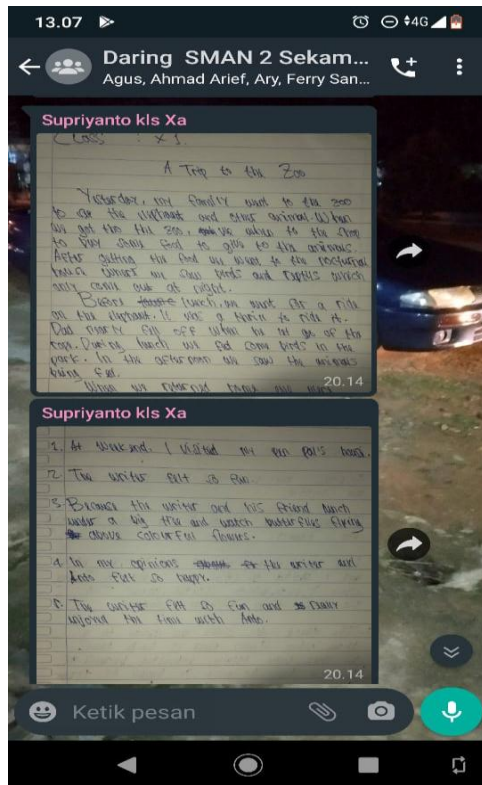 13.07
4G
Daring SMAN 2 Sekam...
Agus, Ahmad Arief, Ary, Ferry San...
Supriyanto kls Xa
Class : X1
A Trip to the Zoo
Yesterday, my family went to the zoo
to see the elephant and other animal. When
we got tho the zoo, we to the shop
to buy some food to give to the animals.
After getting the food we went to the nocturnal
house we saw birds and which
only come out at night.
Before lunch, we went for a ride
on the elephant. It was a thrill to ride it.
Dad fell off when he let go of the
rope. During lunch we fed some birds in the
park. In the afternoon we saw the animals
being fed.
When we returned home we were
20.14
Supriyanto kls Xa
1. At weekend. I visited my pen pal's house.
2. The writer felt so fun.
3. Because the writer and his friend lunch
under a big tree and watch butterflies flying
above colourful flowers.
4. In my opinions the writer and
Ardo so happy.
5. The writer so fun and really
the time with Ardo.
20.14
Ketik pesan